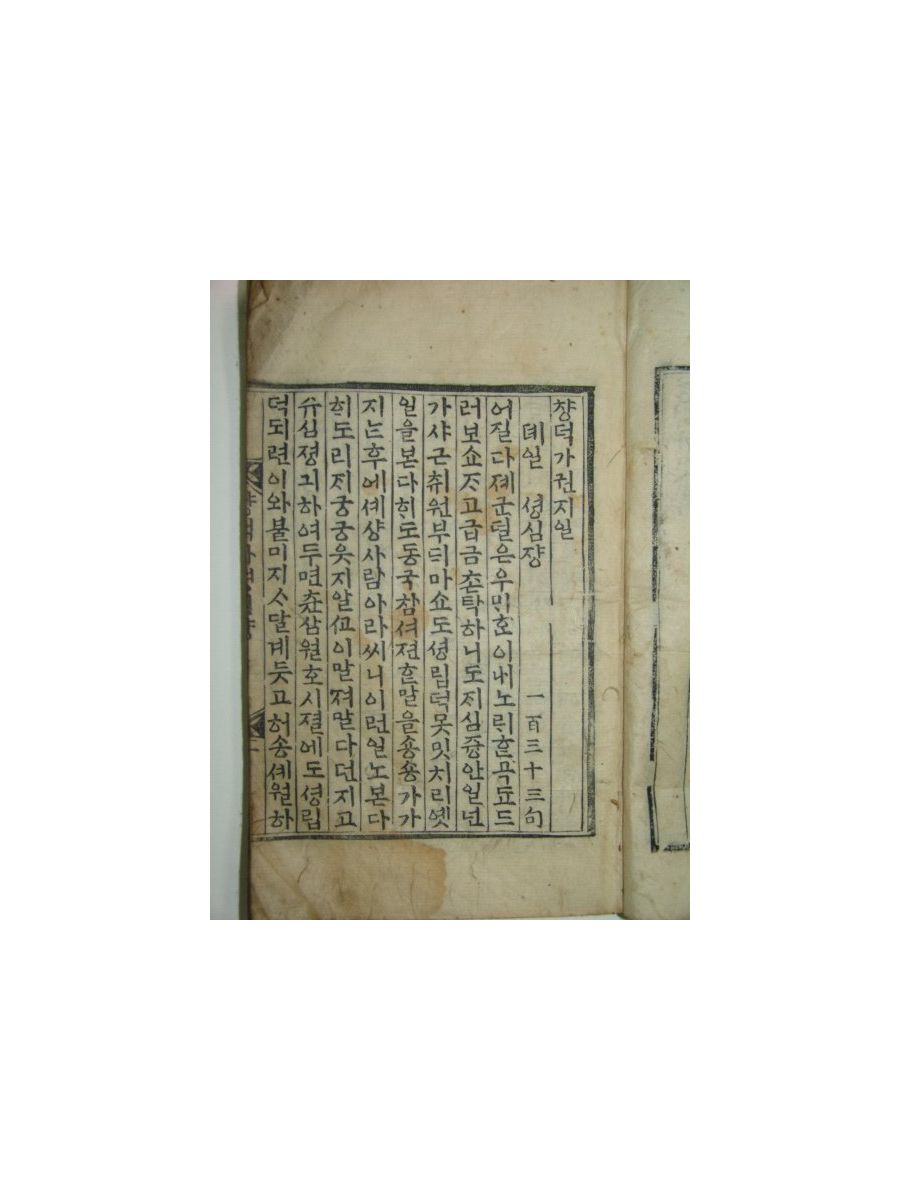 챵덕가권지일
뎨일 셩심쟝 一百三十三句
어질다졔군덜은우민호이내노ᄅᆡᄒᆞᆫ곡됴드
러보쇼ᄌᆞ고급금촌탁하니도지심즁안일넌
가샤근취원부ᄃᆡ마쇼도셩립덕못밋치리옛
일을본다ᄒᆡ도동국참셔젼ᄒᆞᆫ말을숑숑가가
지ᄂᆞᆫ후에셰샹사람아라씨니이런일노본다
ᄒᆡ도리ᄌᆡ궁궁웃지알쇼이말져말다던지고
슈심졍긔하여두면츈삼월호시졀에도셩립
덕되련이와불미지ᄉᆞ달게듯고허숑셰월하